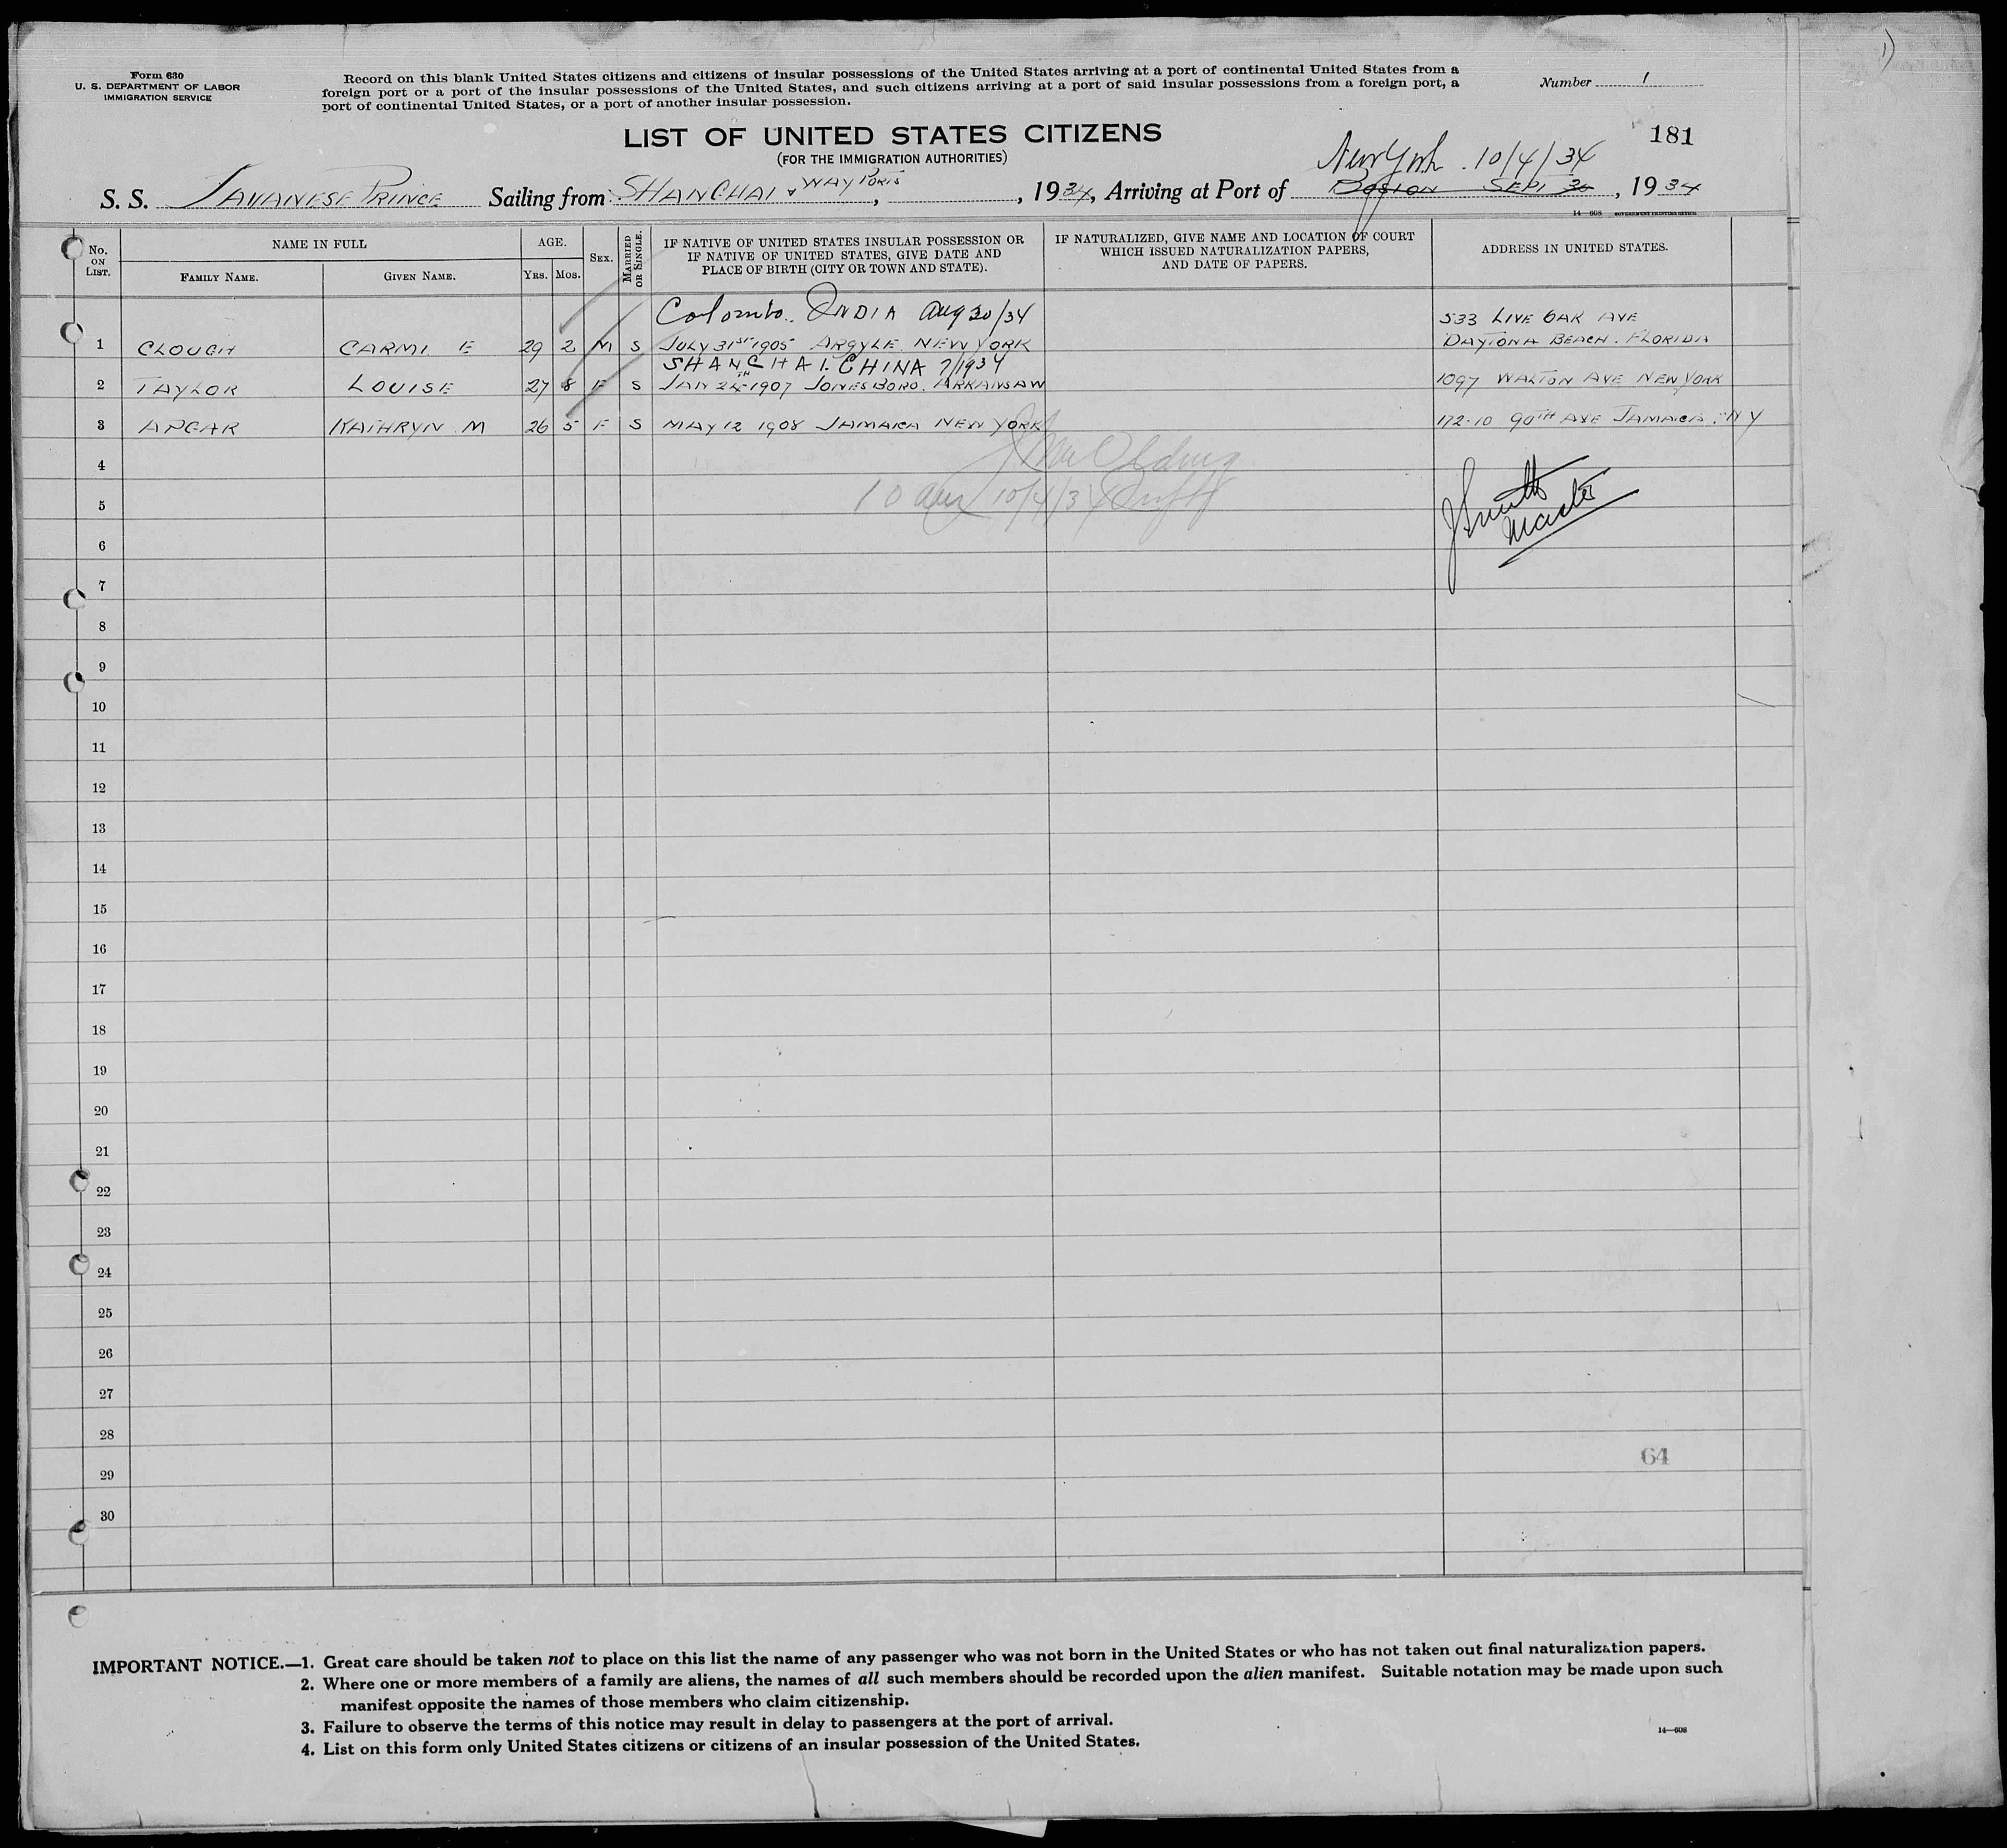 1)
Form 630
U. S. DEPARTMENT OF LABOR
IMMIGRATION SERVICE
Record on this blank United States citizens and citizens of insular possessions of the United States arriving at a port of continental United States from a
foreign port or a port of the insular possessions of the United States, and such citizens arriving at a port of said insular possessions from a foreign port, a
port of continental United States, or a port of another insular possession.
Number 1
LIST OF UNITED STATES CITIZENS
(FOR THE IMMIGRATION AUTHORITIES)
181
New York 10/4/34
S. S. JAVANESE PRINCE Sailing from SHANGHAI & WAY PORTS, , 1934, Arriving at Port of BOSTON SEPT 30, 1934
14—608 GOVERNMENT PRINTING OFFICE
No. ON LIST. NAME IN FULL FAMILY NAME. GIVEN NAME. AGE. YRS. MOS. SEX. MARRIED OR SINGLE.
IF NATIVE OF UNITED STATES INSULAR POSSESSION OR
IF NATIVE OF UNITED STATES, GIVE DATE AND
PLACE OF BIRTH (CITY OR TOWN AND STATE).
IF NATURALIZED, GIVE NAME AND LOCATION OF COURT
WHICH ISSUED NATURALIZATION PAPERS,
AND DATE OF PAPERS.
ADDRESS IN UNITED STATES.
Colombo. INDIA Aug 30/34
533 LIVE OAK AVE
1 CLOUGH CARMI E 29 2 M S JULY 31ST 1905 ARGYLE NEW YORK DAYTONA BEACH. FLORIDA
SHANGHAI. CHINA 7/1934
2 TAYLOR LOUISE 27 8 F S JAN 24TH 1907 JONESBORO. ARKANSAW 1097 WALTON AVE NEW YORK
3 APGAR KATHRYN M 26 5 F S MAY 12 1908 JAMAICA NEW YORK 172-10 90TH AVE JAMAICA. N Y
4
10 am 10/4/34
5
J Smith
Master
6
7
8
9
10
11
12
13
14
15
16
17
18
19
20
21
22
23
24
25
26
27
28
64
29
30
IMPORTANT NOTICE.—1. Great care should be taken not to place on this list the name of any passenger who was not born in the United States or who has not taken out final naturalization papers.
2. Where one or more members of a family are aliens, the names of all such members should be recorded upon the alien manifest. Suitable notation may be made upon such
manifest opposite the names of those members who claim citizenship.
3. Failure to observe the terms of this notice may result in delay to passengers at the port of arrival.
4. List on this form only United States citizens or citizens of an insular possession of the United States.
14—608